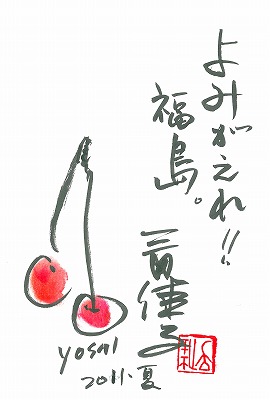 よみがえれ!!
福島。
三田佳子
YOSHI
2011.夏